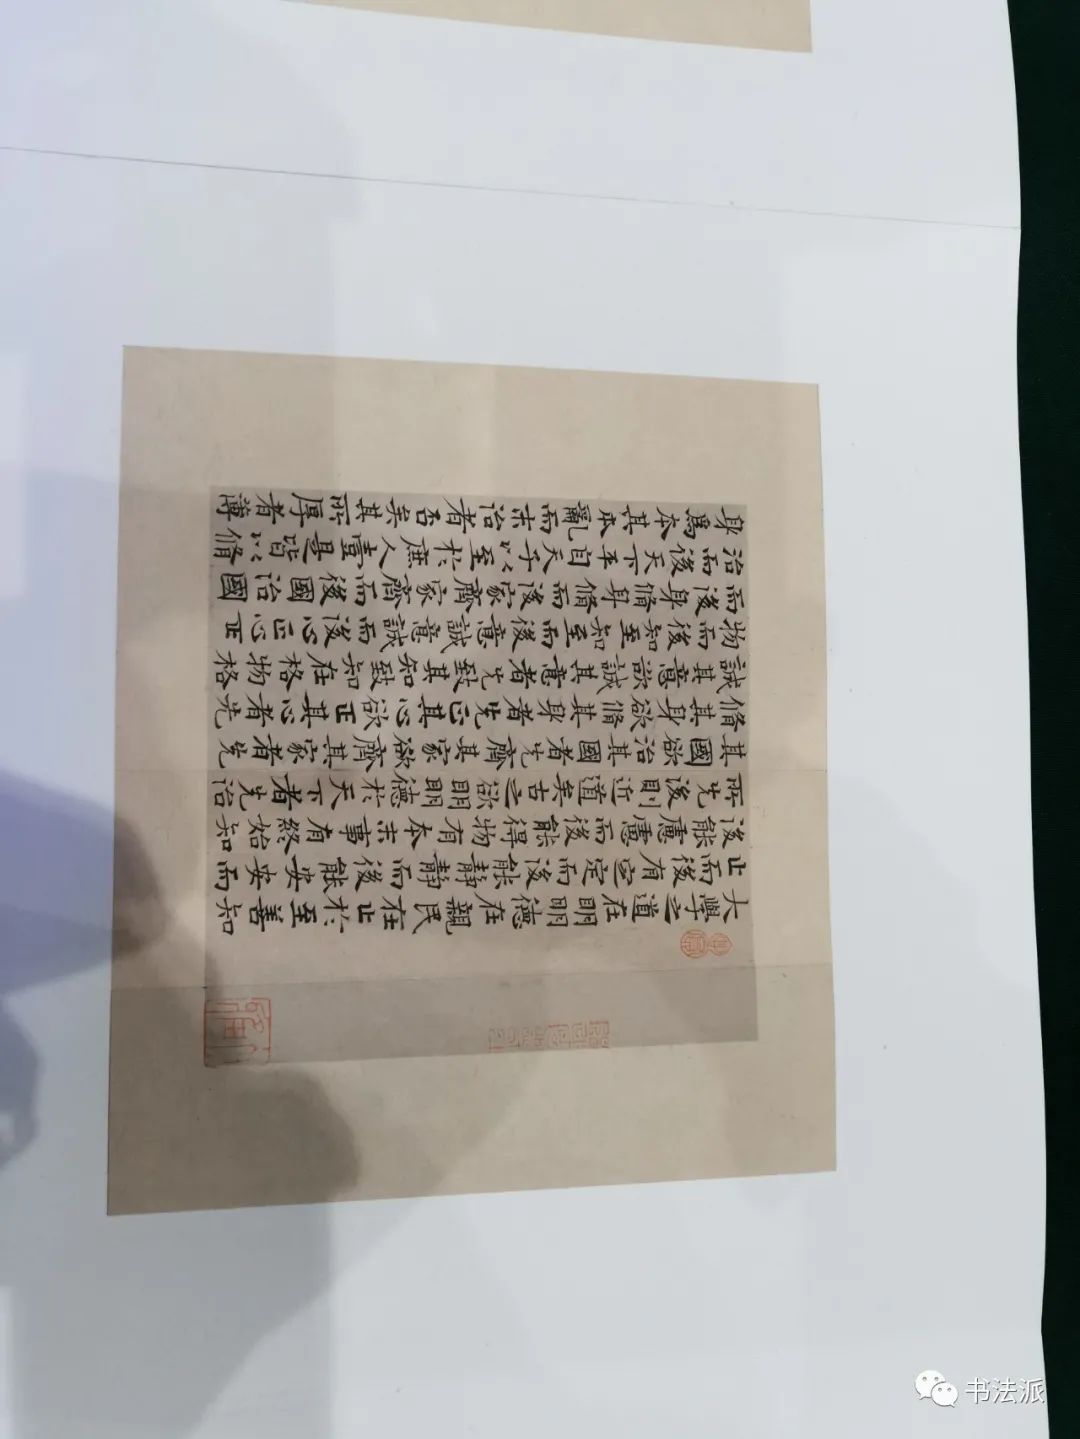 大學之道在明明德在親民在止於至善知
止而後有定定而後能靜靜而後能安安而
後能慮慮而後能得物有本末事有終始知
所先後則近道矣古之欲明明德於天下者先治
其國欲治其國者先齊其家欲齊其家者先
脩其身欲脩其身者先正其心欲正其心者先
誠其意欲誠其意者先致其知致知在格物格
物而後知至知至而後意誠意誠而後心正心正
而後身脩身脩而後家齊家齊而後國治國
治而後天下平自天子以至於庶人壹是皆以脩
身爲本其本亂而末治者否矣其所厚者薄
书法派